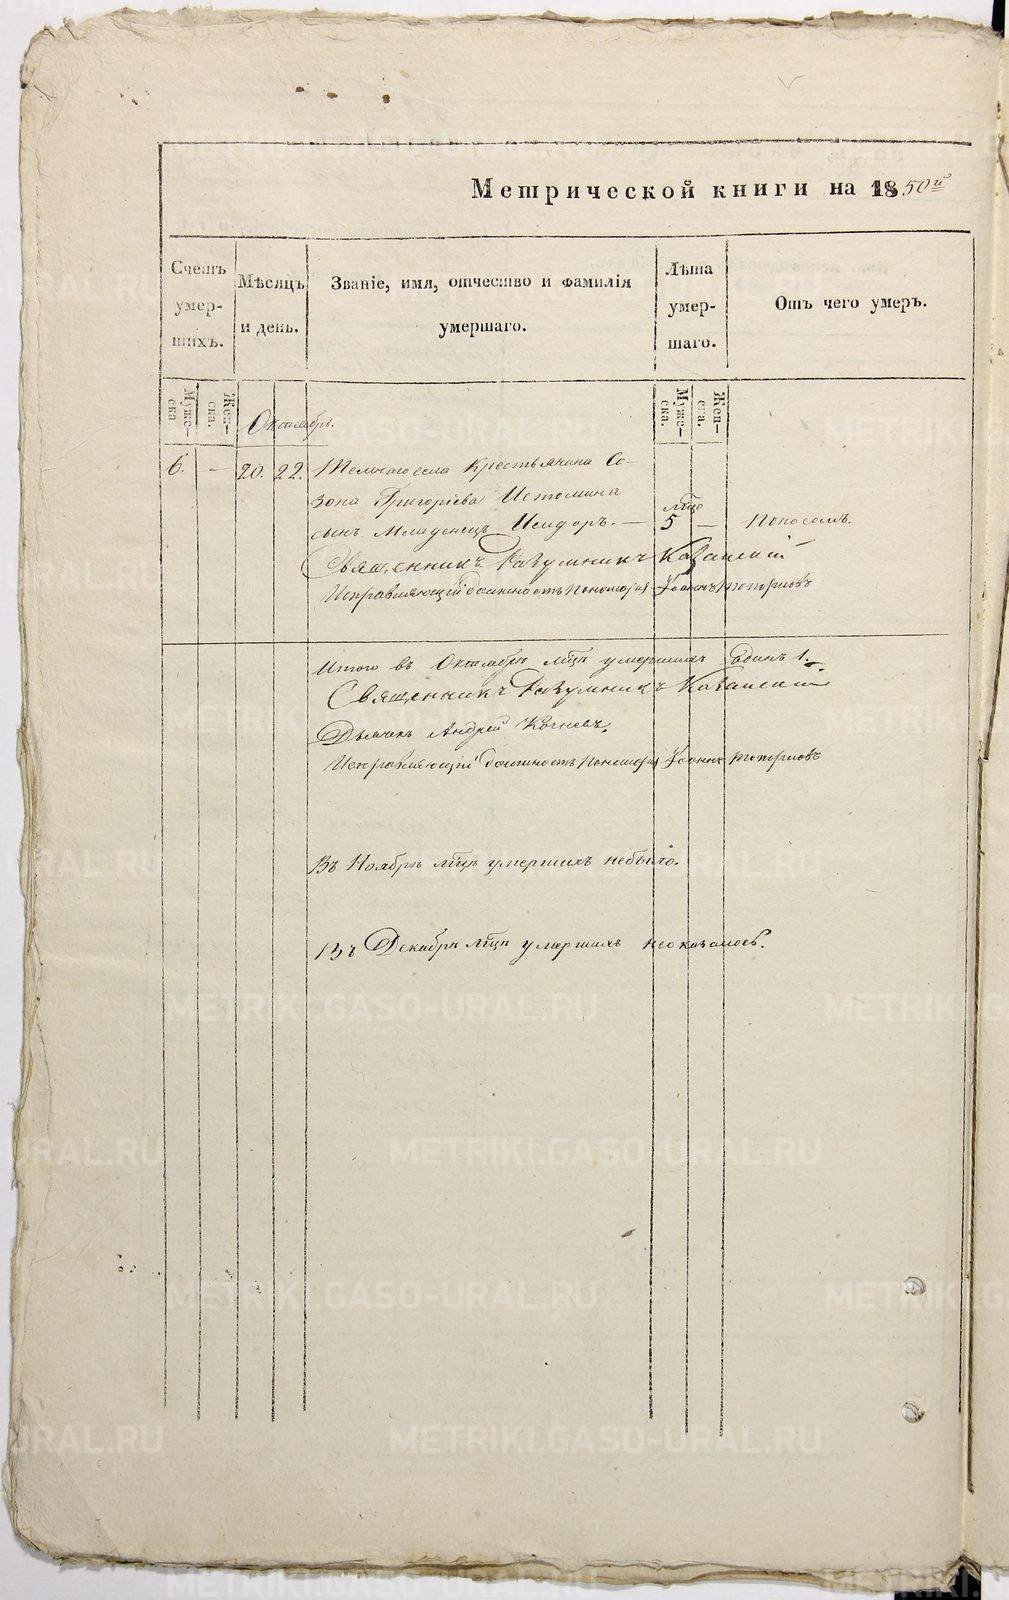 Метрической книги на 1850й
Счетъ умершихъ.
Мѣсяцъ и день.
Званіе, имя, отчество и фамилія умершаго.
Лѣта умершаго.
Отъ чего умеръ.
Муже-
ска
Жен-
ска.
Муже-
ска.
Жен-
ска.
Октябрь.
6. — 20. 22. села Крестьянина Со-
зона Григоріева Истомина
сынъ Младенецъ Исидоръ. — 5 — Поносомъ.
Священникъ Разумникъ Казанскій
Исправляющій должность Пономаря Іоаннъ Топорковъ
Итого въ Октябрѣ мцѣ умершихъ Одинъ 1.
Священникъ Разумникъ Казанскій
Дьячекъ Андрей
Исправляющій должность Пономаря Іоаннъ Топорковъ
Въ Ноябрѣ мцѣ умершихъ небыло.
Въ Декабрѣ мцѣ умершихъ неоказалось.
METRIKI.GASO-URAL.RU